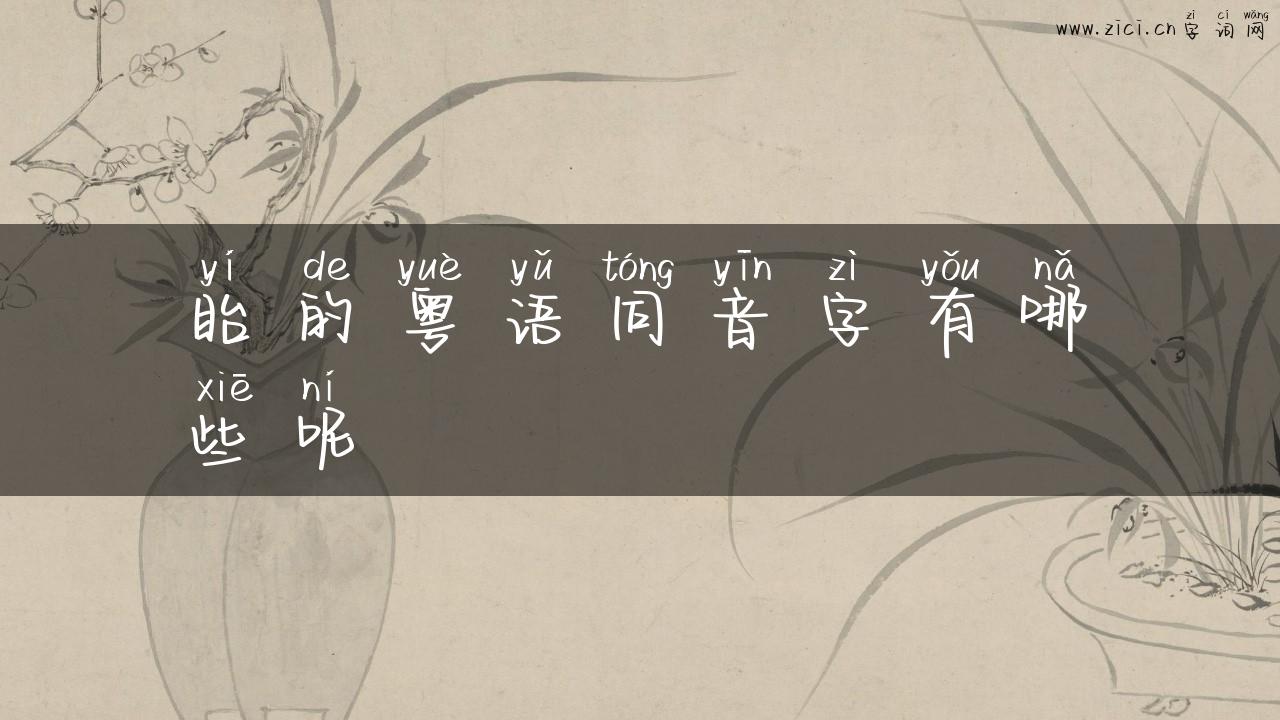 zì cí wǎng
www.zici.cn字词网
yí de yuè yǔ tóng yīn zì yǒu nǎ
眙的粤语同音字有哪
xiē ní
些呢